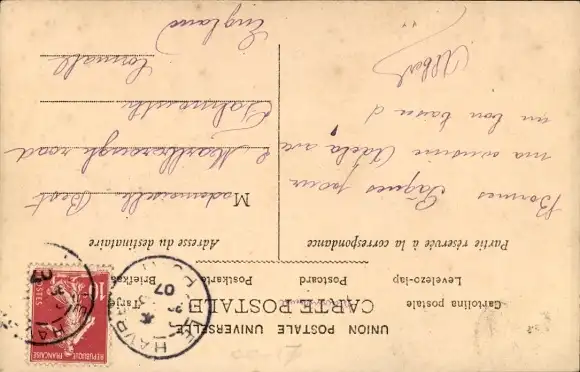 UNION POSTALE UNIVERSELLE
CARTE POSTALE
Cartolina postale
Postcard
Postkarte
Tarjeta
Levelezo-lap
Briefkaart
Partie réservée à la correspondance
Adresse du destinataire
Bonnes Pâques pour
ma cousine Adela, avec
un bon baiser d
Albert
Mademoiselle Best
2 Marlborough road
Falmouth
Cornwall
England
REPUBLIQUE FRANÇAISE
POSTES
LE HAVRE
07